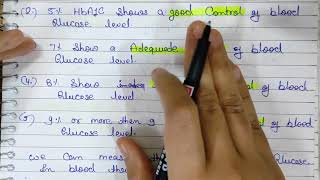 (2.) 5% HbA1C Shows a good Control of blood
Glucose level.
7% Show a Adequade of blood
Glucose level.
(4.) 8% Show of blood
Glucose level.
9% or more then 9 of blood
Glucose level.
We Can meas Glucose.
In blood thro